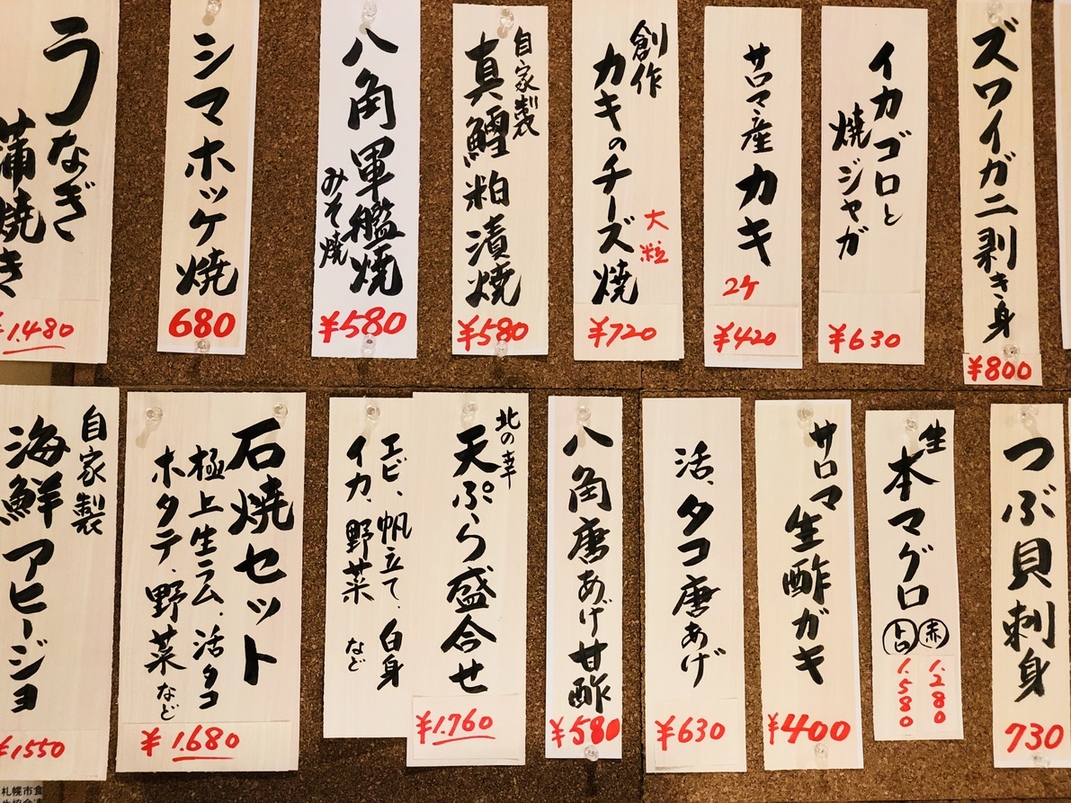 ズワイガニ剥き身
¥800
イカゴロと
焼ジャガ
¥630
サロマ産カキ
2ケ
¥420
創作
カキのチーズ焼
大粒
¥720
自家製
真鱈粕漬焼
¥580
八角軍艦焼
みそ焼
¥580
シマホッケ焼
680
うなぎ
蒲焼き
¥1.480
つぶ貝刺身
730
生
本マグロ
赤 1.280
トロ 1.580
サロマ
生酢ガキ
¥400
活、タコ唐あげ
¥630
八角唐あげ甘酢
¥580
北の幸
天ぷら盛合せ
¥1.760
エビ、帆立て、白身
イカ、野菜 など
石焼セット
極上生ラム、活タコ
ホタテ、野菜など
¥1.680
自家製
海鮮アヒージョ
¥1550
札幌市食